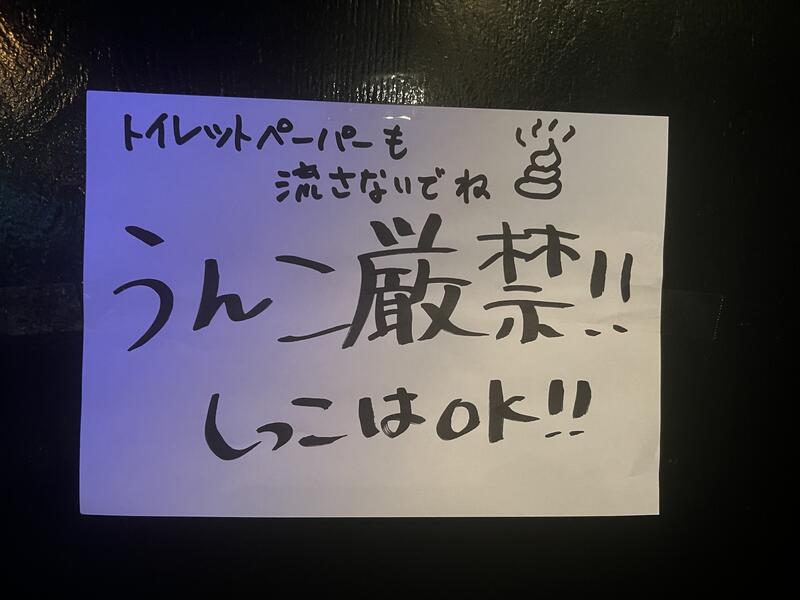 トイレットペーパーも
流さないでね
うんこ厳禁!!
しっこはOK!!